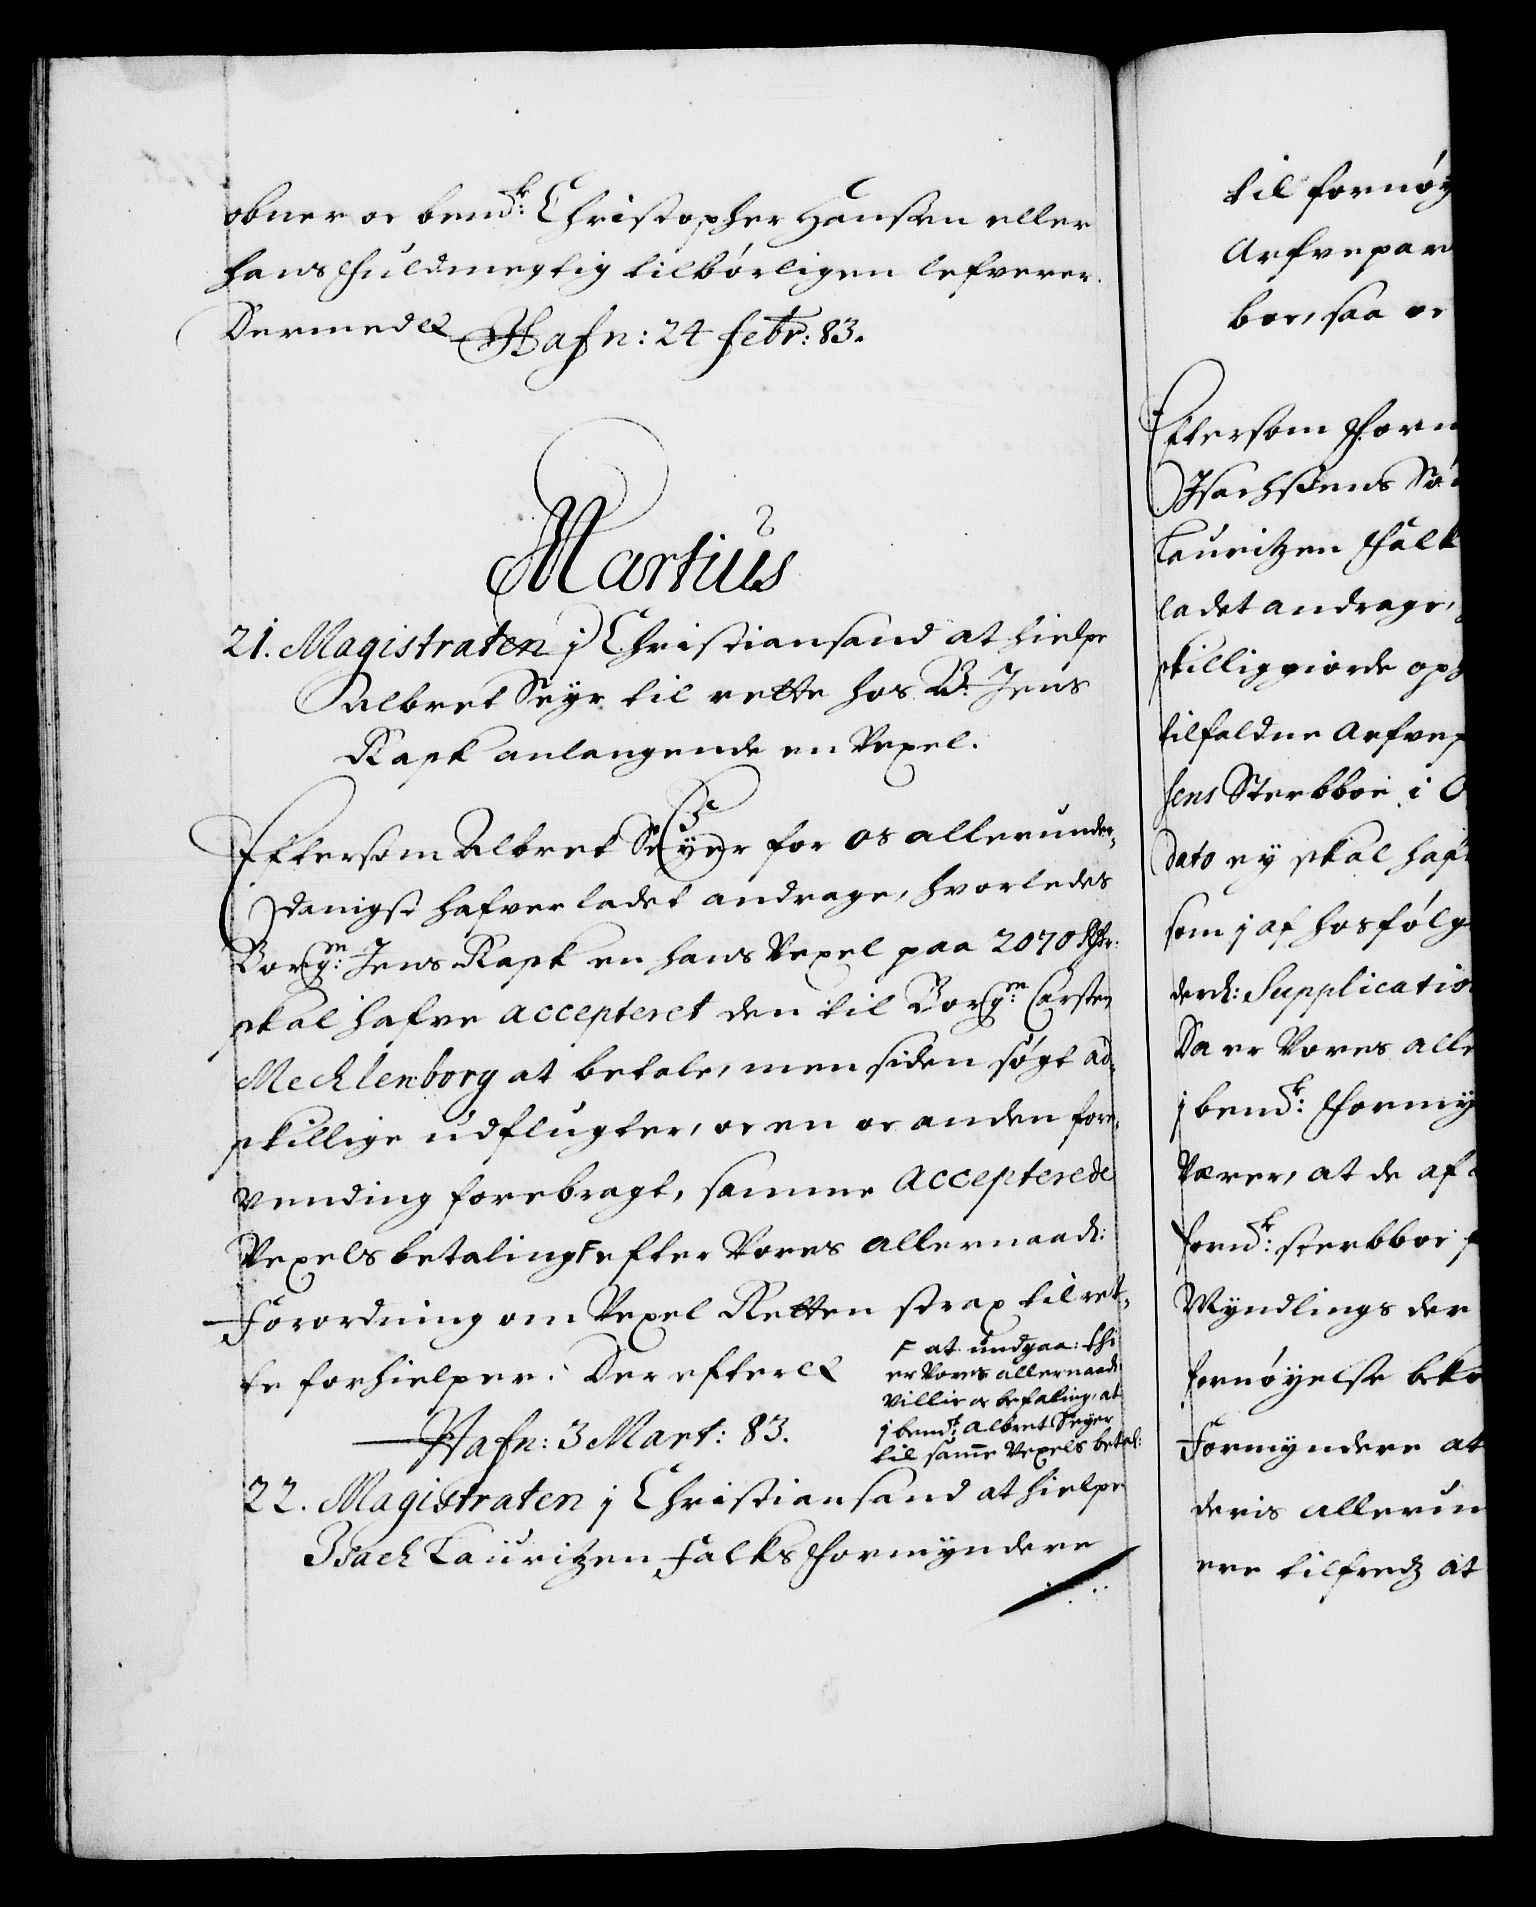 obner oc bemd:k Christopher Hansen eller
hans fuldmegtig tilbørligen lefverer.
Dermed &c Hafn: 24 febr: 83.
Martius
21. Magistraten j Christiansand at hielpe
Albret Seyr til rette hos B: Jens
Rapk anlangende en Vexel.
C5
Eftersom Albret Seyer for os allerunder-
danigst hafver ladet andrage, hvorledes
Borg:m Jens Rapk en hans Vexel paa 2070 Rdr:
skal hafve accepteret den til Borg:m Carsten
Mechlenborg at betale, men siden søgt ad-
skillige udflugter, oc en oc anden fore-
vending forebragt, samme accepterede
Vexels betaling F efter Vores allernaad:
Forordning om Vexel Retten strax til ret-
te forhielper. Der efter &c
F at undgaa: thi
er Vores allernaad:
Villie oc befaling, at
j bemd:te Albret Seyer
til same Vexels betal:
Hafn: 3 Mart: 83.
22. Magistraten j Christiansand at hielpe
Isach Lauritzen Falks formyndere
til fornøy
Arfvepar
bor, saa er
Eftersom Form
Isachsens Sø
Lauritzen Falk
ladet andrage,
skilliggiorde op
tilfaldne Arfvep
sens Sterbboe i
dato ey skal haf
som j af hosfølg
derd: Supplicatio
Da er Vores alle
j bemd:te formy
Værer, at de af
forn:te sterbboe
Myndlings der
fornøyelse beko
Formyndere at
deris allerun
ere tilfredz at